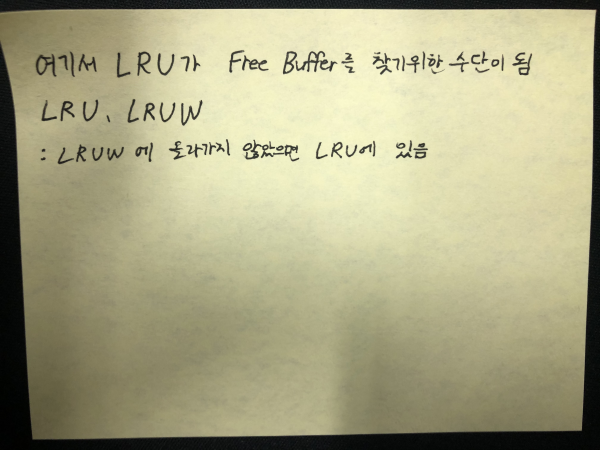 여기서 LRU가 Free Buffer를 찾기위한 수단이 됨
LRU, LRUW
: LRUW에 올라가지 않았으면 LRU에 있음